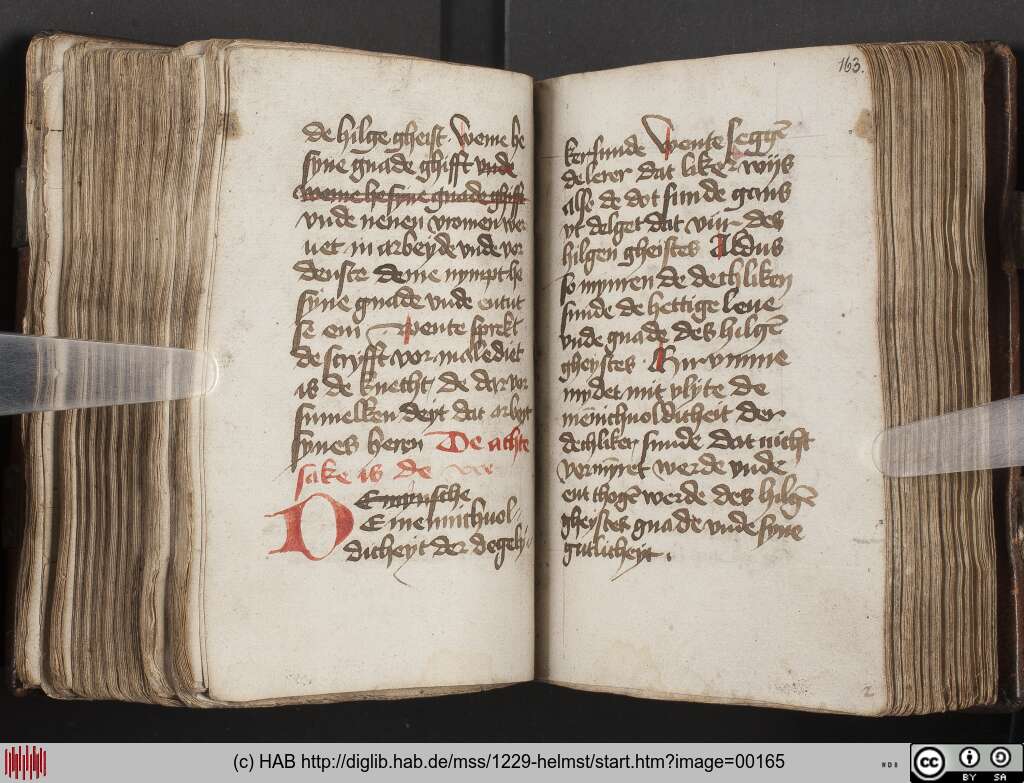 de hilge gheist. Weme he
syne gnade ghifft vnde
weme he syne gnade ghifft
vnde nenen vromen wer
uet in arbeyde vnde vor
denste deme nympt he
syne gnade vnde entut
se em Wente sprekt
de scryfft vormalediet
is de knecht de dar vor
sumelken deyt dat arbeyt
synes heren De achte
sake is de
De
De menichuol-
dicheyt der degeli
163.
ker sunde Wente seggē
de lerer dat like wijs
also de dot sunde gans
vt delget dat vur des
hilgen gheistes Aldus
so mynren de dechliken
sunde de hettige leue
vnde gnade des hilgē
gheystes. Hir vmme
mydet mit vlyte de
mēnichuoldicheit der
dechliker sunde dat nicht
vermynret werde vnde
ent thogē werde des hilgē
gheystes gnade vnde syne
gutlicheyt.
2
(c) HAB http://diglib.hab.de/mss/1229-helmst/start.htm?image=00165
cc BY SA